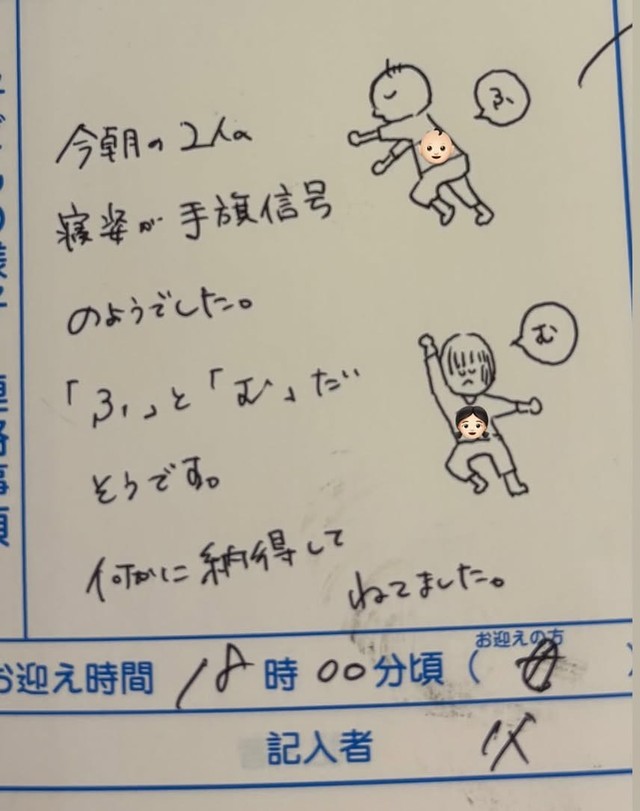 今朝の2人の
寝姿が手旗信号
のようでした。
「ふ」と「む」だ
そうです。
何かに納得して
ねてました。
ふ
む
お迎えの方
お迎え時間 18時00分頃(母)
記入者 父